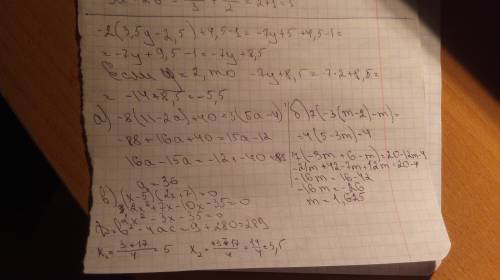 -2(3,5y-2,5)+4,5-1=-7y+5+4,5-1=
=-7y+9,5-1=-7y+8,5
Если y=2, то -7y+8,5=-7·2+8,5=
=-14+8,5=-5,5
а) -8(11-2a)+40=3(5a-4)
-88+16a+40=15a-12
16a-15a=-12+-40+88
a=36
б) 7(-3(m-2)-m)=
-4(5-3m)-4
7(-3m+6-m)=20-12m-4
-21m+42-7m+12m=20-4
-16m=16-42
-16m=-26
m=1,625
в) (x-5)(2x+7)=0
2x²+7x-10x-35=0
2x²-3x-35=0
D=b²-4ac=9+280=289
x₁=3+17/4=5 x₂=+3+17/4=14/4=3,5